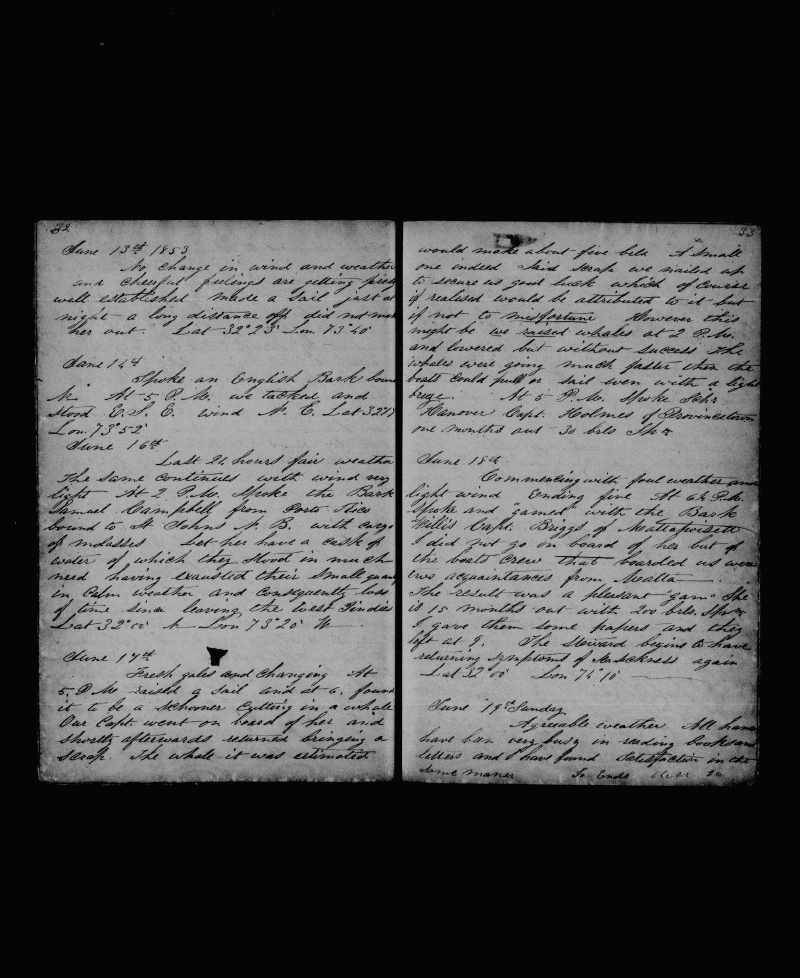 32
June 13th 1853
No change in wind and weather
and cheerful feelings are getting
well established made a sail just at
night a long distance off did not
her out. Lat 32°23' Lon. 73°40'
June 14th
Spoke an English Bark
At 5 P.M. we tacked and
Stood E.S.E. wind N.E. Lat
Lon. 73°52'
June 16th
Last 24 hours fair weather
The same continues with wind very
light At 2 P.M. Spoke the Bark
Samuel Campbell from Porto Rico
bound to St Johns N.B. with cargo
of molasses Let her have a cask of
water of which they stood in much
need having exausted their small
in calm weather and consequently loss
of time since leaving the West Indies
Lat 32°00' N Lon 73°20' W
June 17th
Fresh gales and changing At
5. P.M. raisd a sail and at 6. found
it to be a Schooner Cutting in a whale
Our Capt. went on board of her and
shortly afterwards returned bringing a
scrap. The whale it was estimated
33
would make about five bbls A small
one indeed Said scrap we nailed up
to secure us good luck which of course
if realised would be attributed to it but
if not to misfortune However this
might be we raised whales at 2 P.M.
and lowered but without success The
whales were going much faster than the
boats could pull or sail even with a light
breze. At 5 P.M. Spoke Schr
Hanover Capt. Holmes of Provincetown
one months out 30 brls Spm
June 18th
Commencing with foul weather and
light wind Ending fine At 6½ P.M.
Spoke and "gamed" with the Bark
Willis Capt. Briggs of Mattapoisett
I did not go on board of her but of
the boats crew that boarded us were
two acquaintances from Matta
The result was a pleasant "gam" She
is 15 months out with 200 brls. Spm
I gave them some papers and they
left at 9. The Steward begins to have
returning symptoms of seasickness again
Lat 32°00' Lon 74°10'
June 19th Sunday
Agreeable weather All hands
have ben very busy in reading books and
letters and I have found satisfaction in the
same maner So Ends